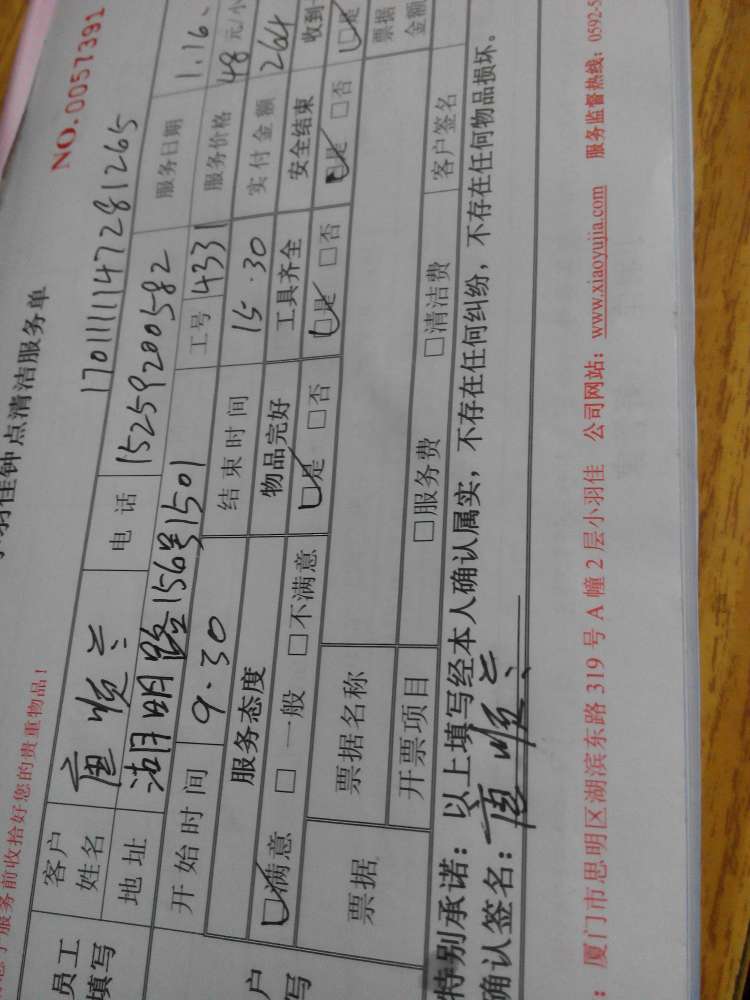 羽佳钟点清洁服务单
NO.0057391
服务前收拾好您的贵重物品！
1701111147281265
员工填写
客户姓名 唐悦兰 电话 15259200582 服务日期 1.16
地址 湖明路156号1501 工号 4331 服务价格 48元/小
开始时间 9.30 结束时间 15.30 实付金额 264
服务态度 物品完好 工具齐全 安全结束 收到
☑满意 □一般 □不满意 ☑是 □否 ☑是 □否 ☑是 □否 ☑是
票据 票据名称 票据金额
开票项目 □服务费 □清洁费 客户签名
特别承诺：以上填写经本人确认属实，不存在任何纠纷，不存在任何物品损坏。
确认签名：唐悦兰
：厦门市思明区湖滨东路319号A幢2层小羽佳 公司网站：www.xiaoyujia.com 服务监督热线：0592-5